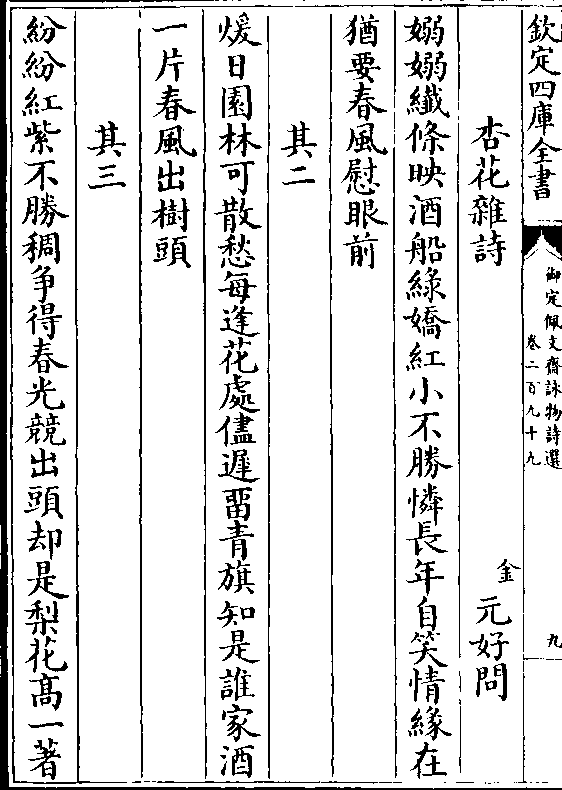 欽定四庫全書
御定佩文齋詠物詩選
卷二百九十九
九
杏花雜詩
金 元好問
嫋嫋纖條映酒船綠嬌紅小不勝憐長年自笑情緣在
猶要春風慰眼前
其二
煖日園林可散愁每逢花處儘遲畱青旗知是誰家酒
一片春風出樹頭
其三
紛紛紅紫不勝稠争得春光競出頭却是梨花髙一著